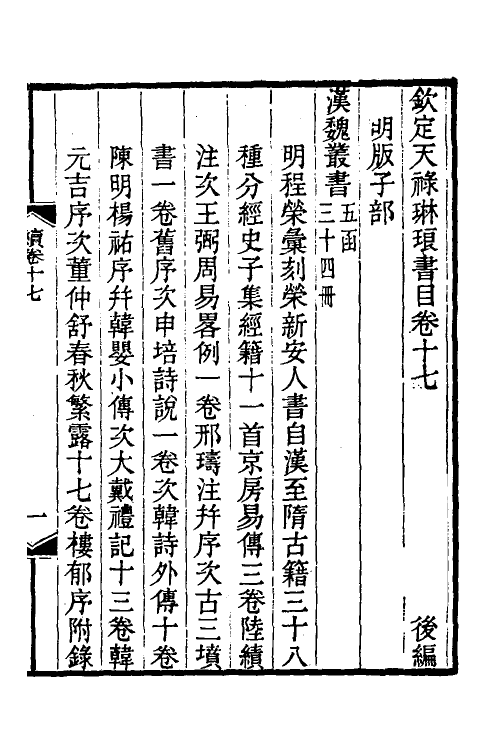 欽定天祿琳琅書目卷十七　後編
明版子部
漢魏叢書五函三十四冊
明程榮彙刻榮新安人書自漢至隋古籍三十八
種分經史子集經籍十一首京房易傳三卷陸績
注次王弼周易畧例一卷邢璹注幷序次古三墳
書一卷舊序次申培詩說一卷次韓詩外傳十卷
陳明楊祐序幷韓嬰小傳次大戴禮記十三卷韓
元吉序次董仲舒春秋繁露十七卷樓郁序附錄
續卷十七
一